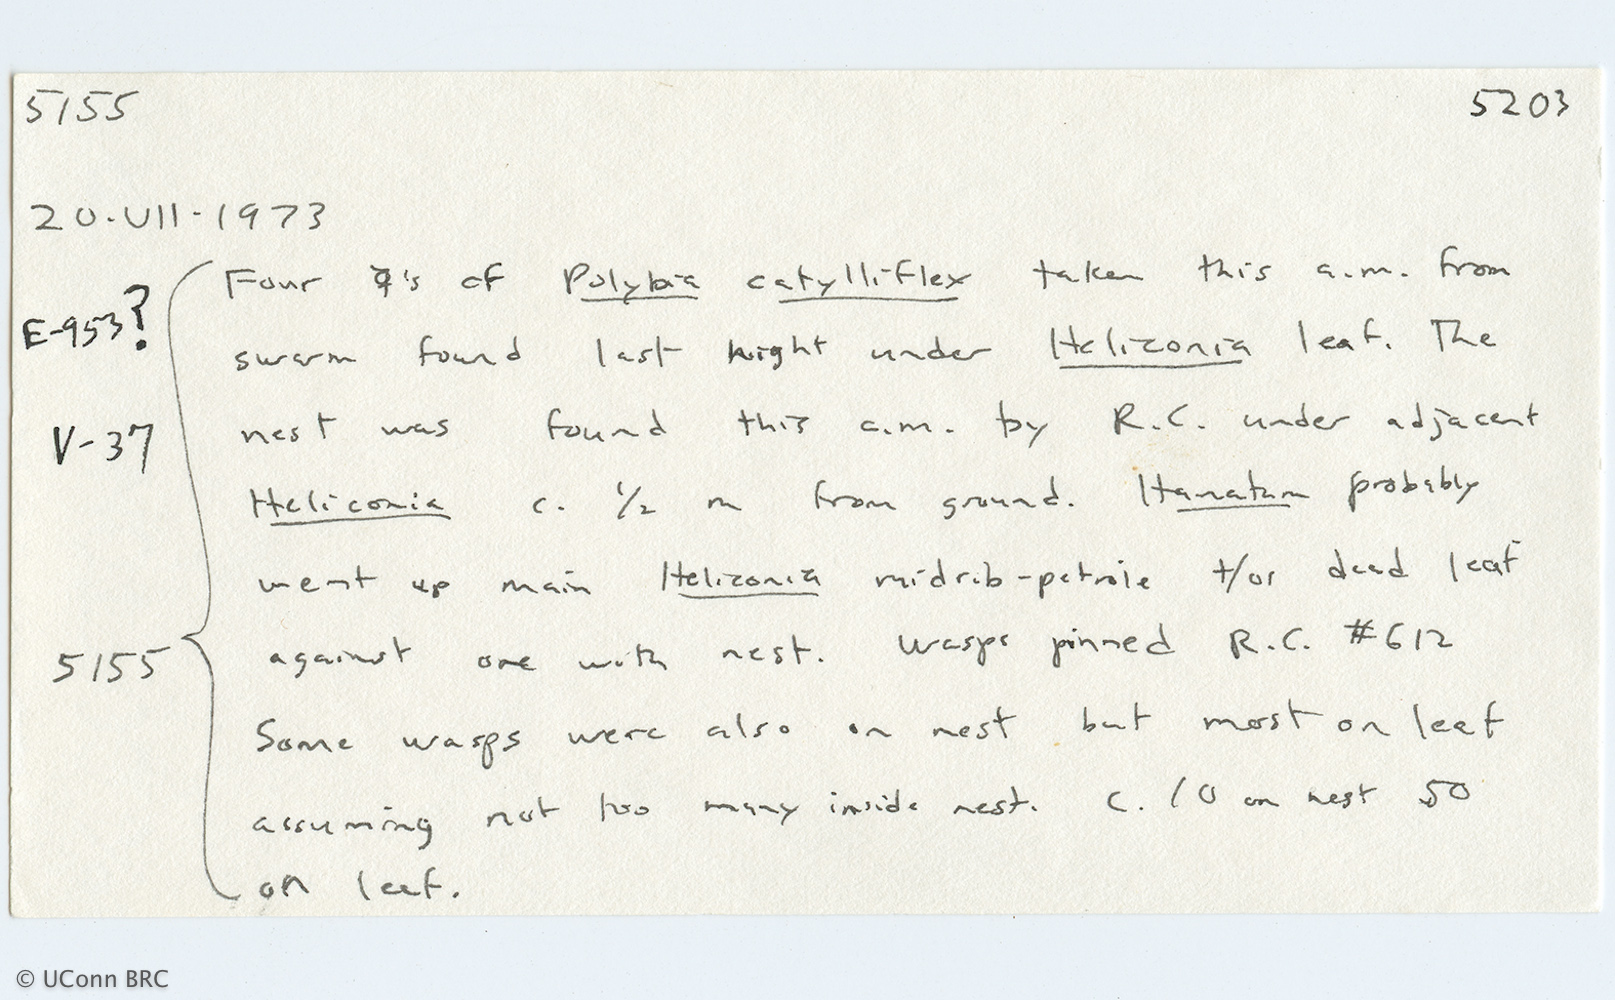 5155 5203
20·VII·1973
Four ☿'s of Polybia catylliflex taken this a.m. from
E-953?
swarm found last night under Heliconia leaf. The
V-37
nest was found this a.m. by R.C. under adjacent
Heliconia c. 1/2 m from ground. Hamatum probably
went up main Heliconia midrib-petiole +/or dead leaf
5155
against one with nest. Wasps pinned R.C. #612
Some wasps were also on nest but most on leaf
assuming not too many inside nest. c. 10 on nest 50
on leaf.
© UConn BRC